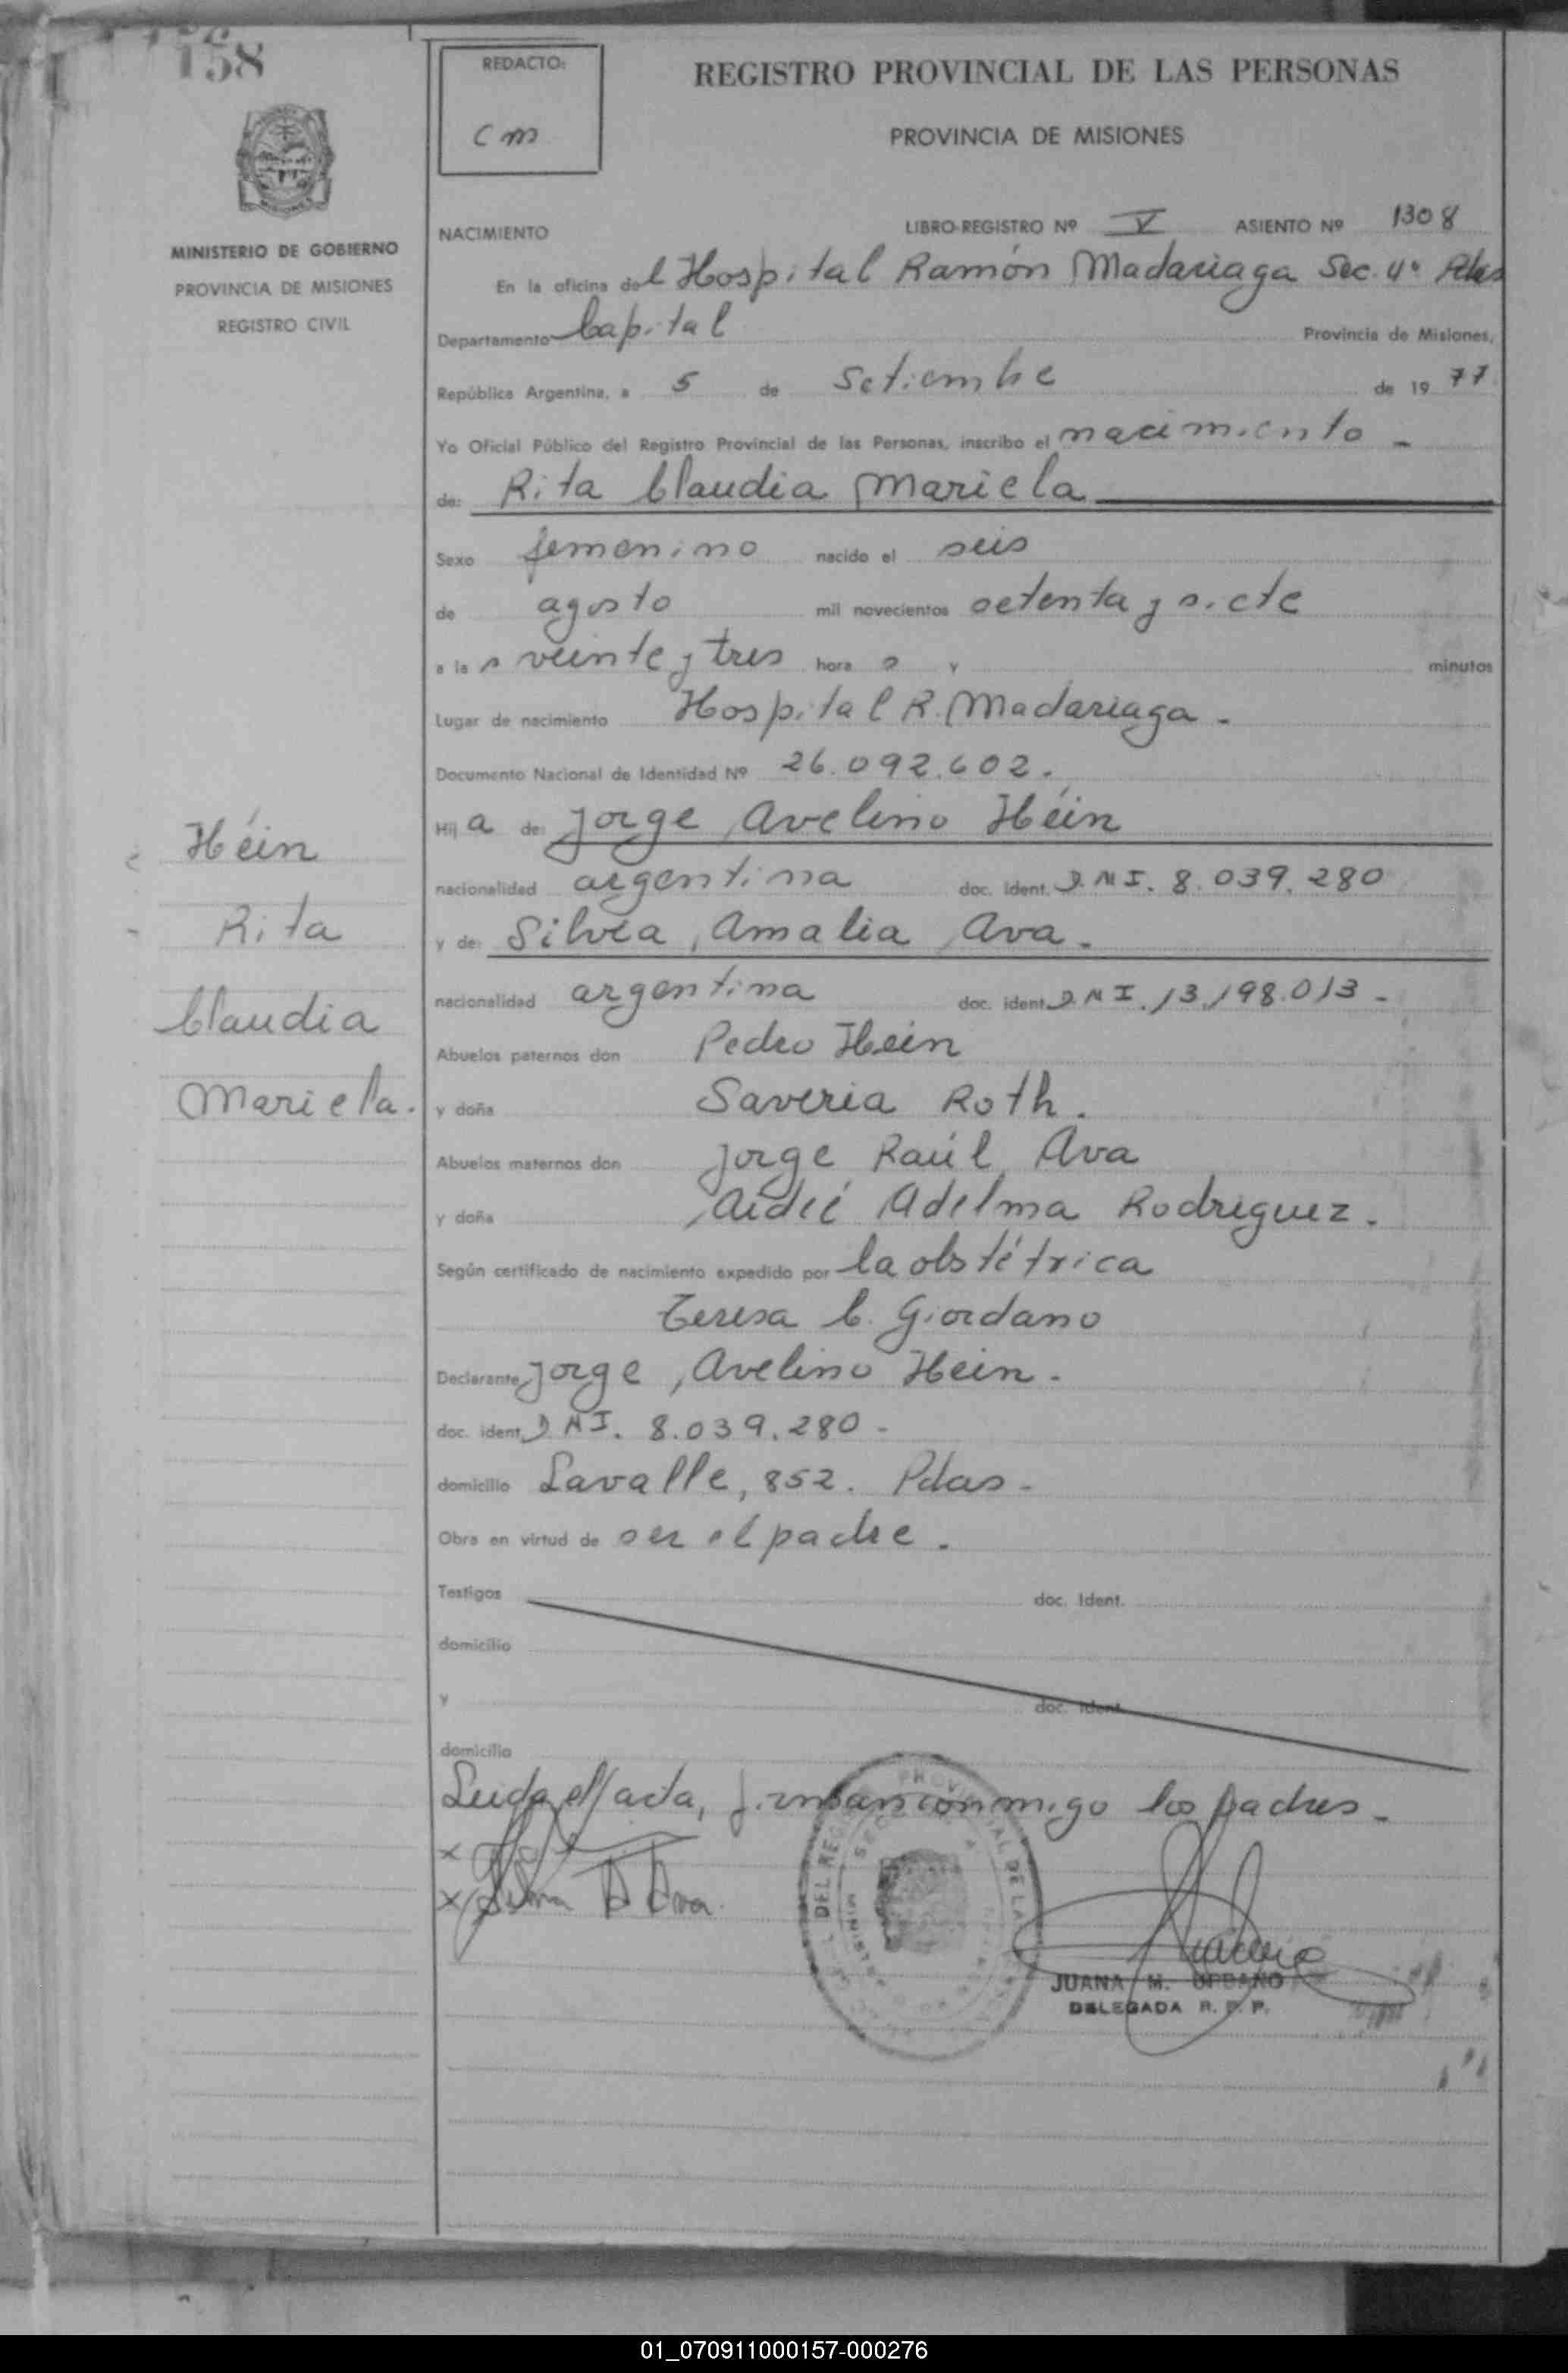 158
MINISTERIO DE GOBIERNO
PROVINCIA DE MISIONES
REGISTRO CIVIL
REDACTO:
Cm
REGISTRO PROVINCIAL DE LAS PERSONAS
PROVINCIA DE MISIONES
NACIMIENTO
LIBRO-REGISTRO Nº V ASIENTO Nº 1308
En la oficina del Hospital Ramón Madariaga Sec. 4ª Pdas
Departamento Capital Provincia de Misiones,
República Argentina, a 5 de Setiembre de 1977
Yo Oficial Público del Registro Provincial de las Personas, inscribo el nacimiento -
de: Rita Claudia Mariela
Sexo femenino nacido el seis
de agosto mil novecientos setenta y siete
a las veinte y tres horas y minutos
Lugar de nacimiento Hospital R. Madariaga -
Documento Nacional de Identidad Nº 26.092.602.
Hija de: Jorge Avelino Héin
nacionalidad argentina doc. ident. D.N.I. 8.039.280
y de: Silvia Amalia Ava.
nacionalidad argentina doc. ident. D.N.I. 13.198.013 -
Abuelos paternos don Pedro Hein
y doña Saveria Roth.
Abuelos maternos don Jorge Raúl Ava
y doña Aideé Adelma Rodriguez.
Según certificado de nacimiento expedido por la obstétrica
Teresa C. Giordano
Declarante Jorge Avelino Hein.
doc. ident. D.N.I. 8.039.280 -
domicilio Lavalle, 852. Pdas -
Obra en virtud de ser el padre.
Testigos doc. Ident.
domicilio
y doc. ident.
domicilio
Leida el acta, firman conmigo los padres -
x
x Silvia A Ava
JUANA M. URBANO
DELEGADA R. P. P.
Héin
Rita
Claudia
Mariela.
01_070911000157-000276